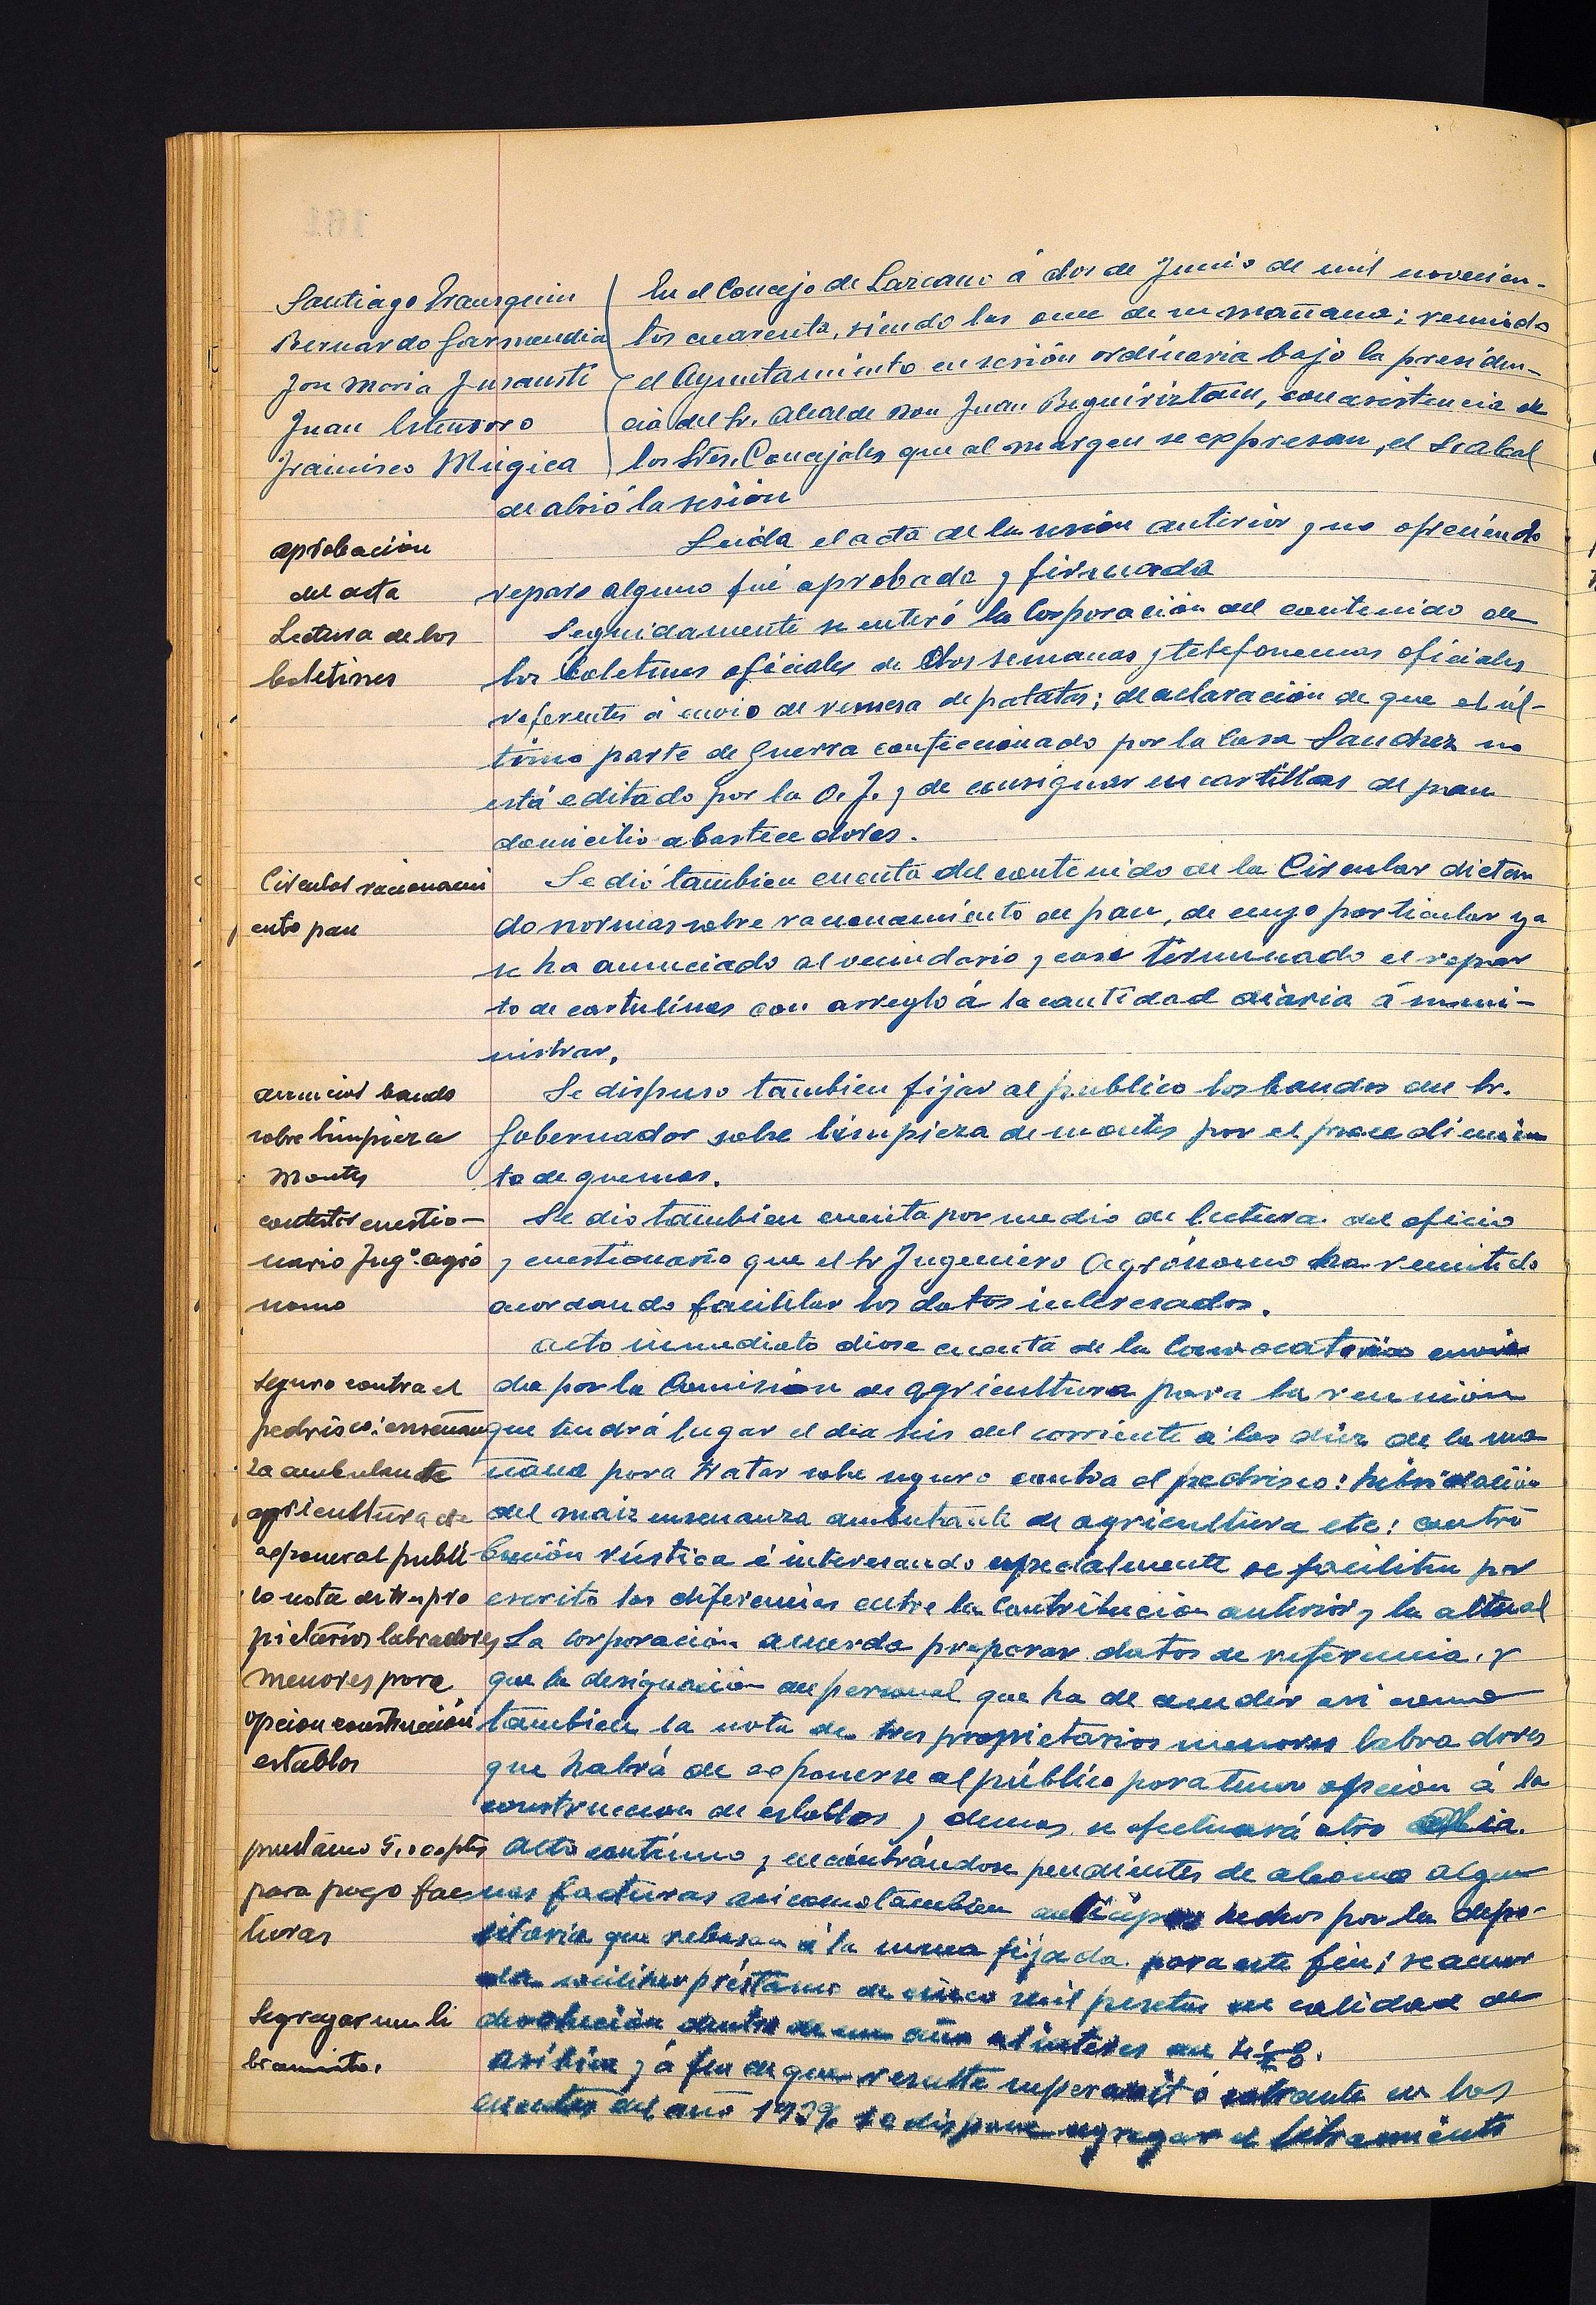 Santiago Iraurguin
Bernardo Garmendia
José Maria Insausti
Juan Estensoro
Francisco Múgica
En el Concejo de Lazcano á dos de Junio de mil novecien-
tos cuarenta, siendo las once de su mañana; reunido
el Ayuntamiento en sesión ordinaria bajo la presiden-
cia del Sr. Alcalde Don Juan Beguiriztain, con asistencia de
los Sres. Concejales que al margen se expresan, el Sr alcal
de abrió la sesión
aprobación
del acta
Leida el acta de la sesión anterior y no ofreciendo
reparo alguno fué aprobada y firmada
Lectura de los
boletines
Seguidamente se enteró la Corporación del contenido de
los boletines oficiales de dos semanas y telefonemas oficiales
referentes á envio de remesa de patatas; de aclaración de que el úl-
timo parte de Guerra confeccionado por la Casa Sanchez no
está editado por la O. J. y de consignar en cartillas de pan
domicilio abastecedores.
Circular racionami
ento pan
Se dió tambien cuenta del contenido de la Circular dictan
do normas sobre racionamiento de pan, de cuyo particular ya
se ha anunciado al vecindario y casi terminado el repar
to de cartulinas con arreglo á la cantidad diaria á sumi-
nistrar.
anunciar bando
sobre limpieza
Montes
Se dispuso tambien fijar al publico los bandos del Sr.
Gobernador sobre limpieza de montes por el procedimien
to de quemas.
contestar cuestio-
nario Ingº. agró
nomo
Se dio tambien cuenta por medio de lectura del oficio
y cuestionario que el Sr Ingeniero Agrónomo ha remitido
acordando facilitar los datos interesados.
acto inmediato diose cuenta de la Convocatoria envia
Seguro contra el
pedrisco: enseñan
za ambulante
agricultura etc
exponer al públi
co nota de tres pro
pietarios labradores
menores para
opcion construcción
establos
da por la Comisión de agricultura para la reunión
que tendrá lugar el dia seis del corriente á las diez de la ma
ñana para tratar sobre seguro contra el pedrisco: hibridación
del maiz enseñanza ambulante de agricultura etc: contri
bución rústica é interesando especialmente se faciliten por
escrito las diferencias entre la Contribucion anterior y la actual
La corporación acuerda preparar datos de referencia, y
que la designación del personal que ha de acudir asi como
tambien la nota de tres propietarios menores labradores
que habrá de exponerse al público para tener opcion á la
construccion de establos y demas se efectuará otro dia.
prestamo 5.000 ptas
para pago fac
turas
Acto continuo y encontrándose pendientes de abono algu
nas facturas asi como tambien anticipos hechos por la depo-
sitaria que rebasan á la suma fijada para este fin; se acuer
da solicitar préstamo de cinco mil pesetas en calidad de
devolución dentro de un año al interes del
Segregar un li
bramiento.
Asi bien y á fin de que resulte superavit ó sobrante en las
cuentas del año 1939 se dispone segregar el libramiento